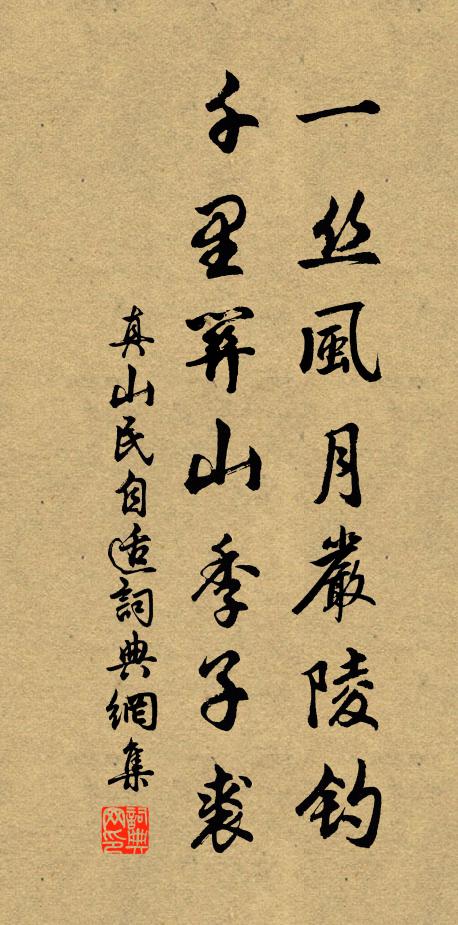 一丝風月嚴陵钓
千里關山季子裘
真山民自适詞典網集
詞典网印